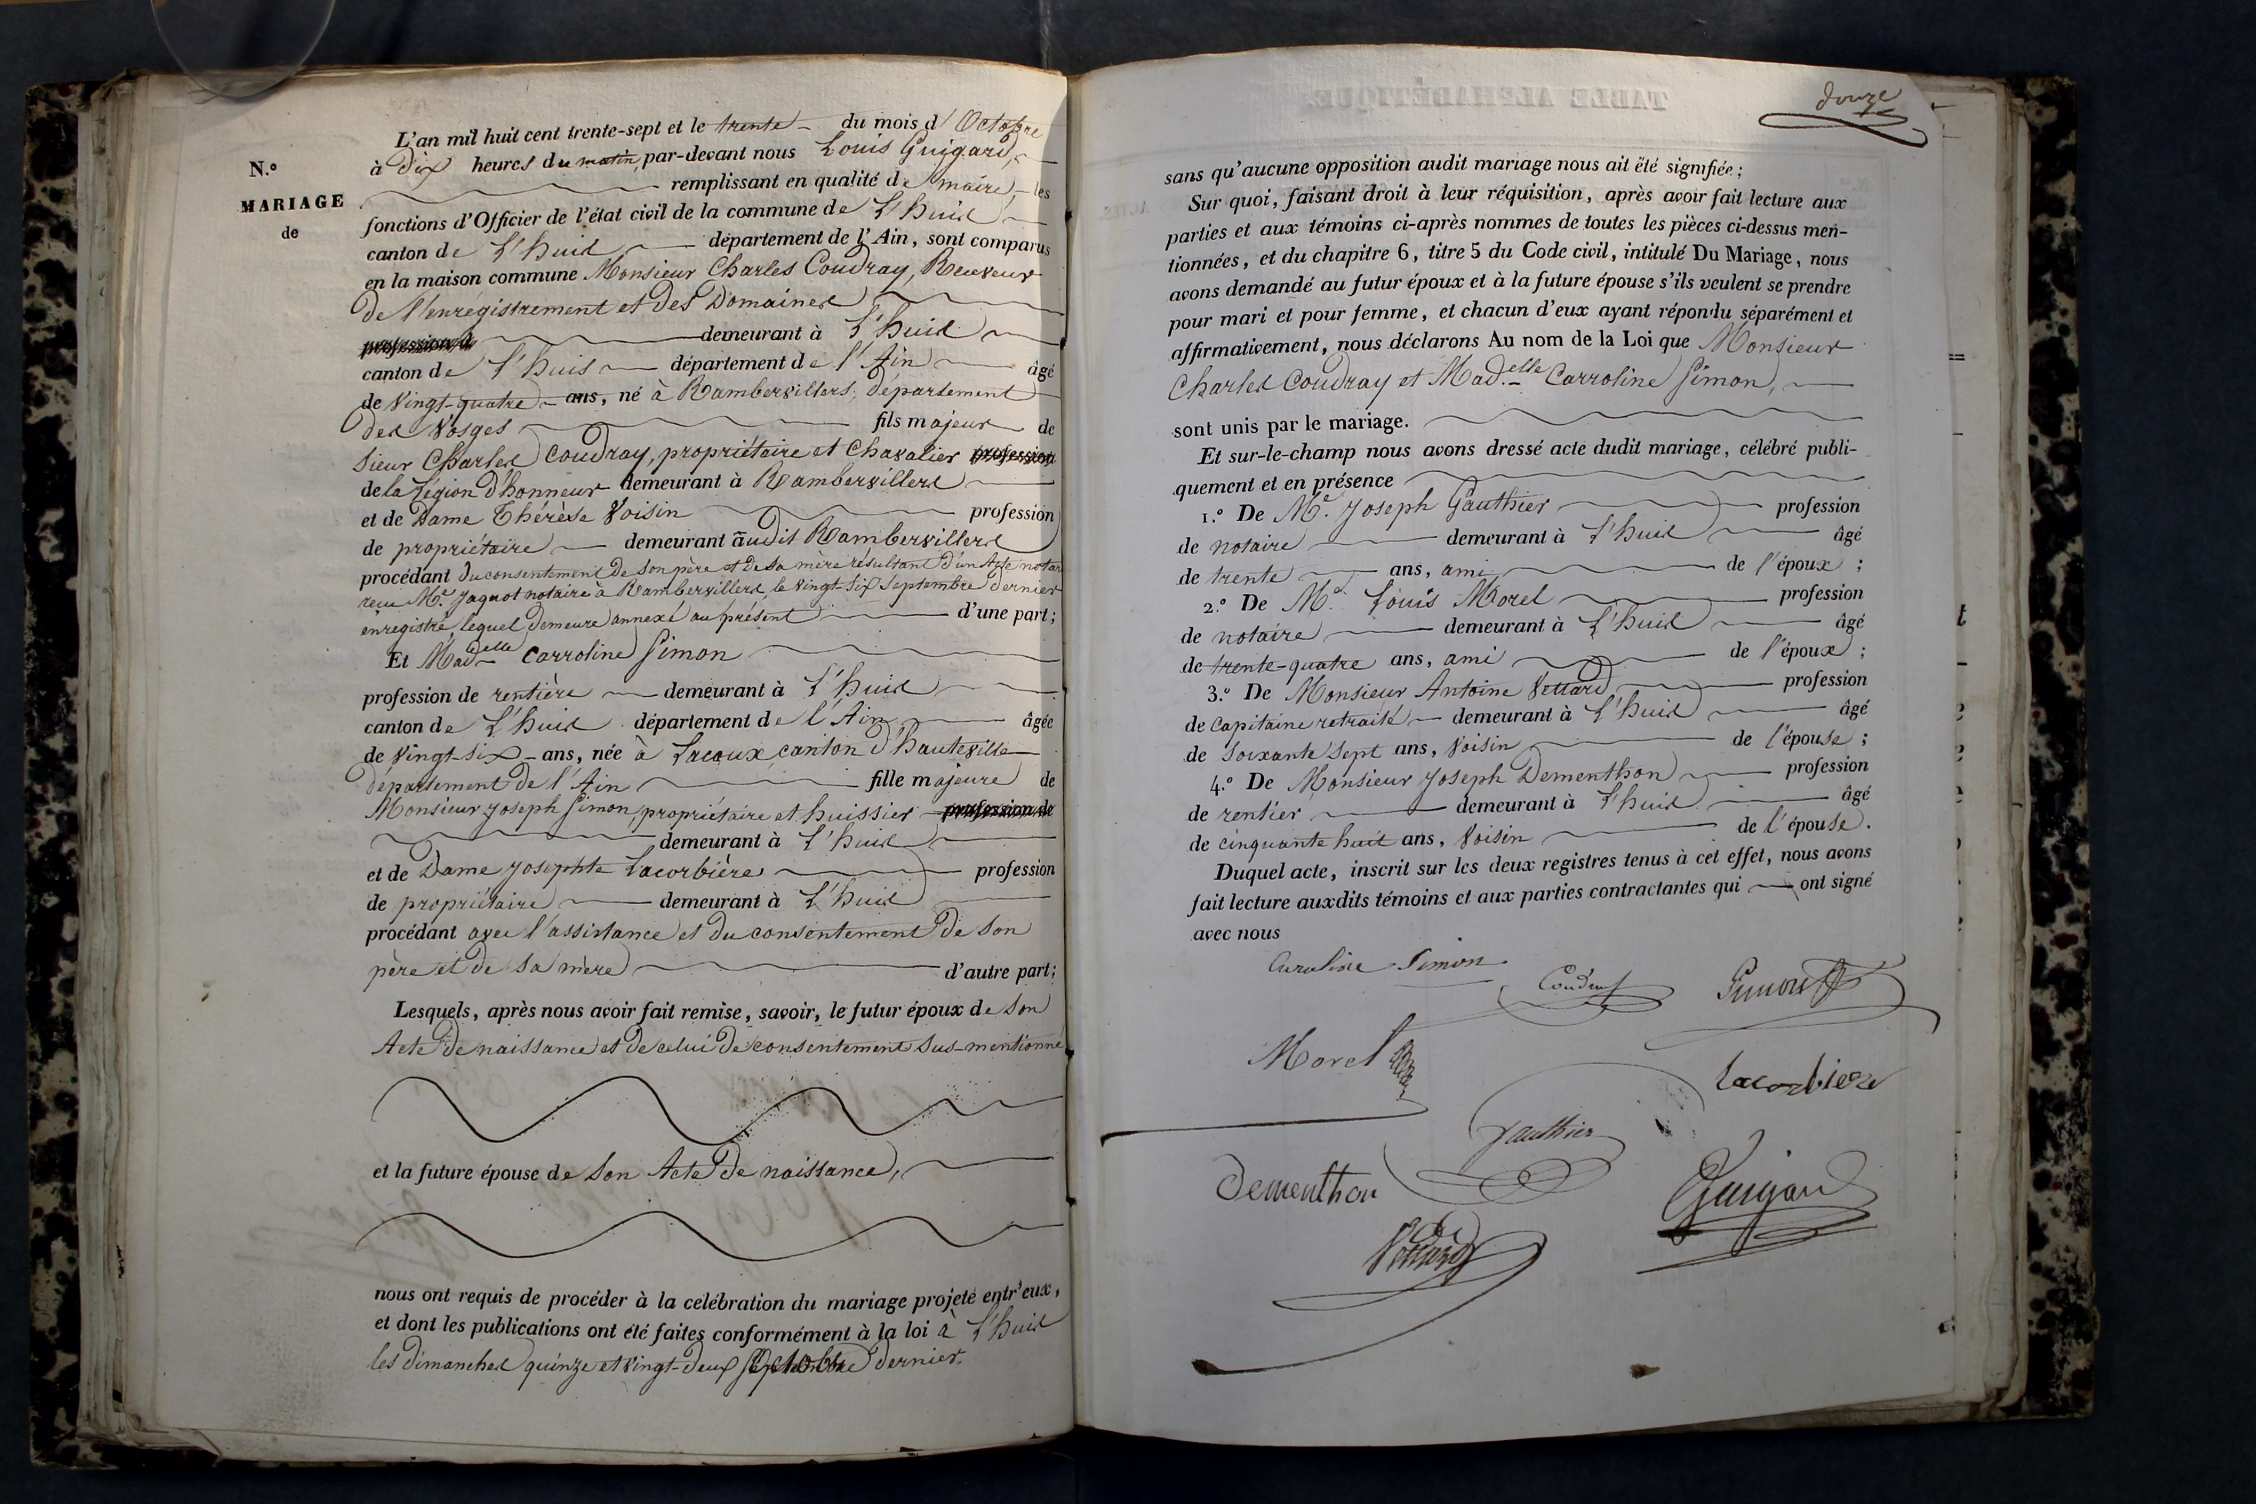 N.°
MARIAGE
de
L'an mil huit cent trente-sept et le trente du mois d'Octobre
à dix heures du matin, par-devant nous Louis Guigard,
remplissant en qualité de maire, les
fonctions d'Officier de l'état civil de la commune de L'huis
canton de L'huis département de l'Ain, sont comparus
en la maison commune Monsieur Charles Coudray, Receveur
de l'enrégistrement et des Domaines
profession de demeurant à L'huis
canton de L'huis département de l'Ain âgé
de vingt-quatre ans, né à Rambervillers, département
des Vosges fils majeur de
Sieur Charles Coudray, propriétaire et Chavalier profession
de la Légion d'honneur demeurant à Rambervillers
et de Dame Thérèse Voisin profession
de propriétaire demeurant audit Rambervillers
procédant du consentement de son père et de sa mère résultant d'un Acte notar
reçu Me. Jaquot notaire à Rambervillers, le vingt-six Septembre dernier
enregistré, lequel demeure annexé au présent d'une part;
Et Madelle Carroline Simon
profession de rentière demeurant à L'huis
canton de L'huis département de l'Ain âgée
de vingt-six ans, née à Lacoux canton d'hauteville
département de l'Ain fille majeure de
Monsieur Joseph Simon, propriétaire et huissier profession de
demeurant à L'huis
et de Dame Josephte Lacorbière profession
de propriétaire demeurant à L'huis
procédant avec l'assistance et du consentement de son
père et de sa mère d'autre part;
Lesquels, après nous avoir fait remise, savoir, le futur époux de son
Acte de naissance et de celui de consentement sus-mentionné
et la future épouse de son Acte de naissance,
nous ont requis de procéder à la célébration du mariage projeté entr'eux,
et dont les publications ont été faites conformément à la loi à L'huis
les dimanches quinze et vingt-deux Octobre dernier.
douze
sans qu'aucune opposition audit mariage nous ait été signifiée;
Sur quoi, faisant droit à leur réquisition, après avoir fait lecture aux
parties et aux témoins ci-après nommes de toutes les pièces ci-dessus men-
tionnées, et du chapitre 6, titre 5 du Code civil, intitulé Du Mariage, nous
avons demandé au futur époux et à la future épouse s'ils veulent se prendre
pour mari et pour femme, et chacun d'eux ayant répondu séparément et
affirmativement, nous déclarons Au nom de la Loi que Monsieur
Charles Coudray et Mad.elle Carroline Simon,
sont unis par le mariage.
Et sur-le-champ nous avons dressé acte dudit mariage, célébré publi-
quement et en présence
1.° De Me. Joseph Gauthier profession
de notaire demeurant à L'huis âgé
de trente ans, ami de l'époux;
2.° De Me. Louis Morel profession
de notaire demeurant à L'huis âgé
de trente-quatre ans, ami de l'époux;
3.° De Monsieur Antoine Vettard profession
de capitaine retraité demeurant à L'huis âgé
de soixante sept ans, voisin de l'épouse;
4.° De Monsieur Joseph Dementhon profession
de rentier demeurant à L'huis âgé
de cinquante huit ans, voisin de l'épouse.
Duquel acte, inscrit sur les deux registres tenus à cet effet, nous avons
fait lecture auxdits témoins et aux parties contractantes qui ont signé
avec nous
Caroline Simon
Coudray
Simon
Morel
Lacorbière
Gauthier
Dementhon
Guigard
Vettard